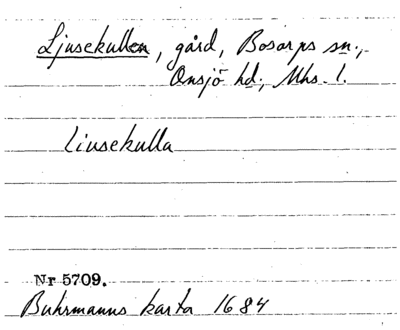 Ljusekullen, gård, Bosarps sn.,
Onsjö hd., Mhs l.
Liusekulla
Nr 5709.
Buhrmanns karta 1684